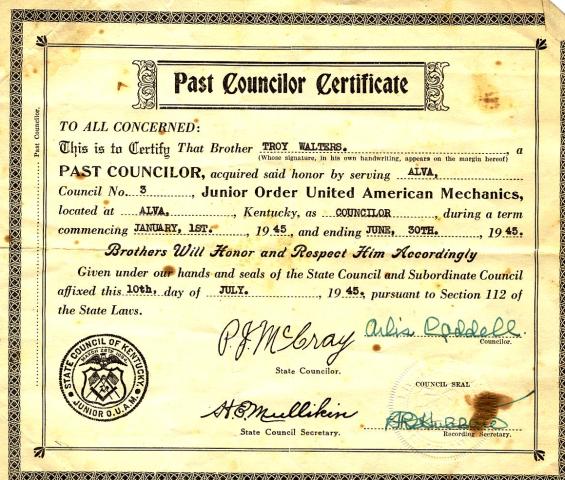 Past Councilor Certificate
TO ALL CONCERNED:
This is to Certify That Brother TROY WALTERS. , a
(Whose signature, in his own handwriting, appears on the margin hereof)
PAST COUNCILOR, acquired said honor by serving ALVA,
Council No. 3 , Junior Order United American Mechanics,
located at ALVA, , Kentucky, as COUNCILOR , during a term
commencing JANUARY, 1ST. , 1945, and ending JUNE, 30TH. , 1945.
Brothers Will Honor and Respect Him Accordingly
Given under our hands and seals of the State Council and Subordinate Council
affixed this 10th, day of JULY. , 1945, pursuant to Section 112 of
the State Laws.
Past Councilor.
P.J. McCray
State Councilor.
Arlis Caddell.
Councilor.
STATE COUNCIL OF KENTUCKY.
JUNIOR O.U.A.M.
COUNCIL SEAL
H.C. Mullikin
State Council Secretary.
Recording Secretary.